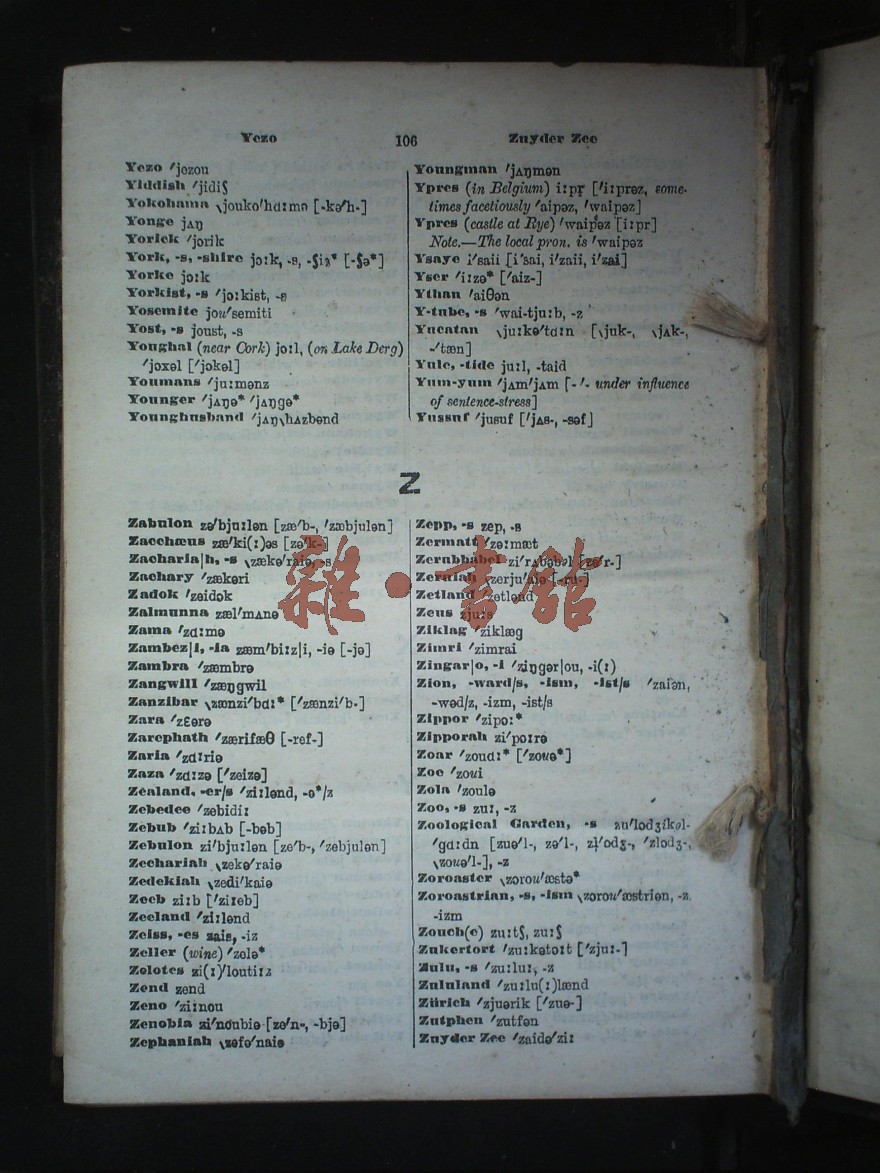 Yezo 106 Zuyder Zee
Yezo ′jezou
Yiddish ′jidiʃ
Yokohama ˎjoukə′hɑːmə [-kə′h-]
Yonge jʌŋ
Yorick ′jɔrik
York, -s, -shire jɔːk, -s, -ʃiə* [-ʃə*]
Yorke jɔːk
Yorkist, -s ′jɔːkist, -s
Yosemite jou′semiti
Yost, -s joust, -s
Youghal (near Cork) jɔːl, (on Lake Derg)
′jɔxəl [′jɔkəl]
Youmans ′juːmənz
Younger ′jʌŋə* ′jʌŋgə*
Younghusband ′jʌŋˎhʌzbənd
Youngman ′jʌŋmən
Ypres (in Belgium) iːpr̥ [′iːprəz, some-
times facetiously ′aipəz, ′waipəz]
Ypres (castle at Rye) ′waipəz [iːpr]
Note.—The local pron. is ′waipəz
Ysaye i′saii [i′sai, i′zaii, i′zai]
Yser ′iːzə* [′aiz-]
Ythan ′aiθən
Y-tube, -s ′wai-tjuːb, -z
Yucatan ˎjuːkə′tɑːn [ˎjuk-, ˎjʌk-,
-′tæn]
Yule, -tide juːl, -taid
Yum-yum ′jʌm′jʌm [- ′- under influence
of sentence-stress]
Yussuf ′jusuf [′jʌs-, -səf]
Z
Zabulon zə′bjuːlən [zæ′b-, ′zæbjulən]
Zacchæus zæ′ki(ː)əs [zə′k-]
Zacharia|h, -s ˎzækə′raiə, -s
Zachary ′zækəri
Zadok ′zeidɔk
Zalmunna zæl′mʌnə
Zama ′zɑːmə
Zambez|i, -ia zæm′biːz|i, -iə [-jə]
Zambra ′zæmbrə
Zangwill ′zæŋgwil
Zanzibar ˎzænzi′bɑː* [′zænzi′b-]
Zara ′zɛərə
Zarephath ′zærifæθ [-ref-]
Zaria ′zɑːriə
Zaza ′zɑːzə [′zeizə]
Zealand, -er/s ′ziːlənd, -ə*/z
Zebedee ′zebidiː
Zebub ′ziːbʌb [-bəb]
Zebulon zi′bjuːlən [ze′b-, ′zebjulən]
Zechariah ˎzekə′raiə
Zedekiah ˎzedi′kaiə
Zeeb ziːb [′ziːeb]
Zeeland ′ziːlənd
Zeiss, -es zais, -iz
Zeller (wine) ′zelə*
Zelotes zi(ː)′loutiːz
Zend zend
Zeno ′ziːnou
Zenobia zi′noubiə [ze′n-, -bjə]
Zephaniah ˎzefə′naiə
Zepp, -s zep, -s
Zermatt ′zəːmæt
Zerubbabel zi′rʌbəbəl [zə′r-]
Zeruiah ˎzerju′aiə [-ru-]
Zetland ′zetlənd
Zeus zjuːs
Ziklag ′ziklæg
Zimri ′zimrai
Zingar|o, -i ′ziŋgər|ou, -i(ː)
Zion, -ward/s, -ism, -ist/s ′zaiən,
-wəd/z, -izm, -ist/s
Zippor ′zipɔː*
Zipporah zi′pɔːrə
Zoar ′zouɑː* [′zouə*]
Zoe ′zoui
Zola ′zoulə
Zoo, -s zuː, -z
Zoological Garden, -s zu′lɔdʒikəl-
′gɑːdn [zuə′l-, zə′l-, zl̩′ɔdʒ-, ′zlɔdʒ-,
ˎzouə′l-], -z
Zoroaster ˎzɔrou′æstə*
Zoroastrian, -s, -ism ˎzɔrou′æstriən, -z,
-izm
Zouch(e) zuːtʃ, zuːʃ
Zukertort ′zuːkətɔːt [′zjuː-]
Zulu, -s ′zuːluː, -z
Zululand ′zuːlu(ː)lænd
Zürich ′zjuərik [′zuə-]
Zutphen ′zutfən
Zuyder Zee ′zaidə′ziː
雜·書館